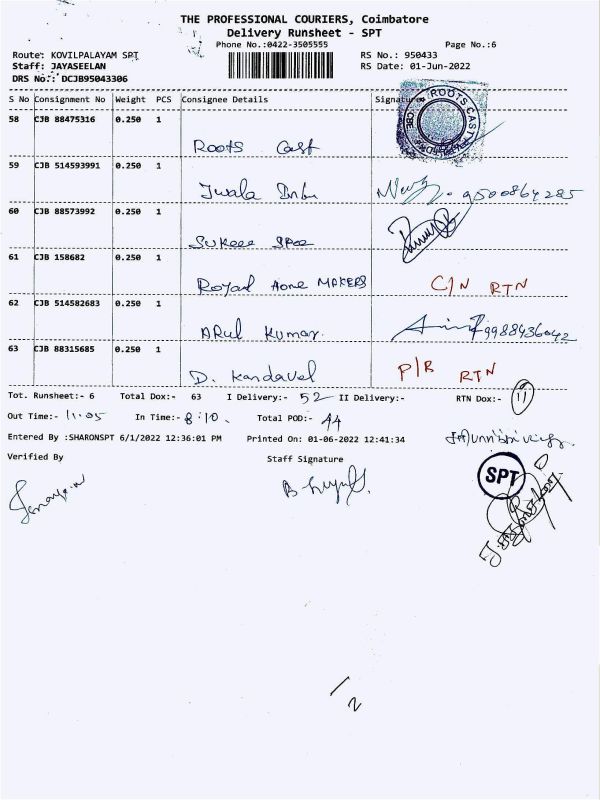 THE PROFESSIONAL COURIERS, Coimbatore
Delivery Runsheet - SPT
Phone No.:0422-3505555 Page No.:6
Route: KOVILPALAYAM SPT RS No.: 950433
Staff: JAYASEELAN RS Date: 01-Jun-2022
DRS No.: DCJB95043306
S No Consignment No Weight PCS Consignee Details Signature
ROOTS CAST CBE
58 CJB 88475316 0.250 1
Roots Cast
59 CJB 514593991 0.250 1
Jwala 9500864285
60 CJB 88573992 0.250 1
61 CJB 158682 0.250 1
Royal Home MAKERS C/N RTN
62 CJB 514582683 0.250 1
ARul Kumar. 9988436042
63 CJB 88315685 0.250 1
D. Kandavel P/R RTN
Tot. Runsheet:- 6 Total Dox:- 63 I Delivery:- 52 II Delivery:- RTN Dox:- 11
Out Time:- 11.05 In Time:- 8:10. Total POD:- 44
Entered By :SHARONSPT 6/1/2022 12:36:01 PM Printed On: 01-06-2022 12:41:34
Verified By Staff Signature
SPT
1/2